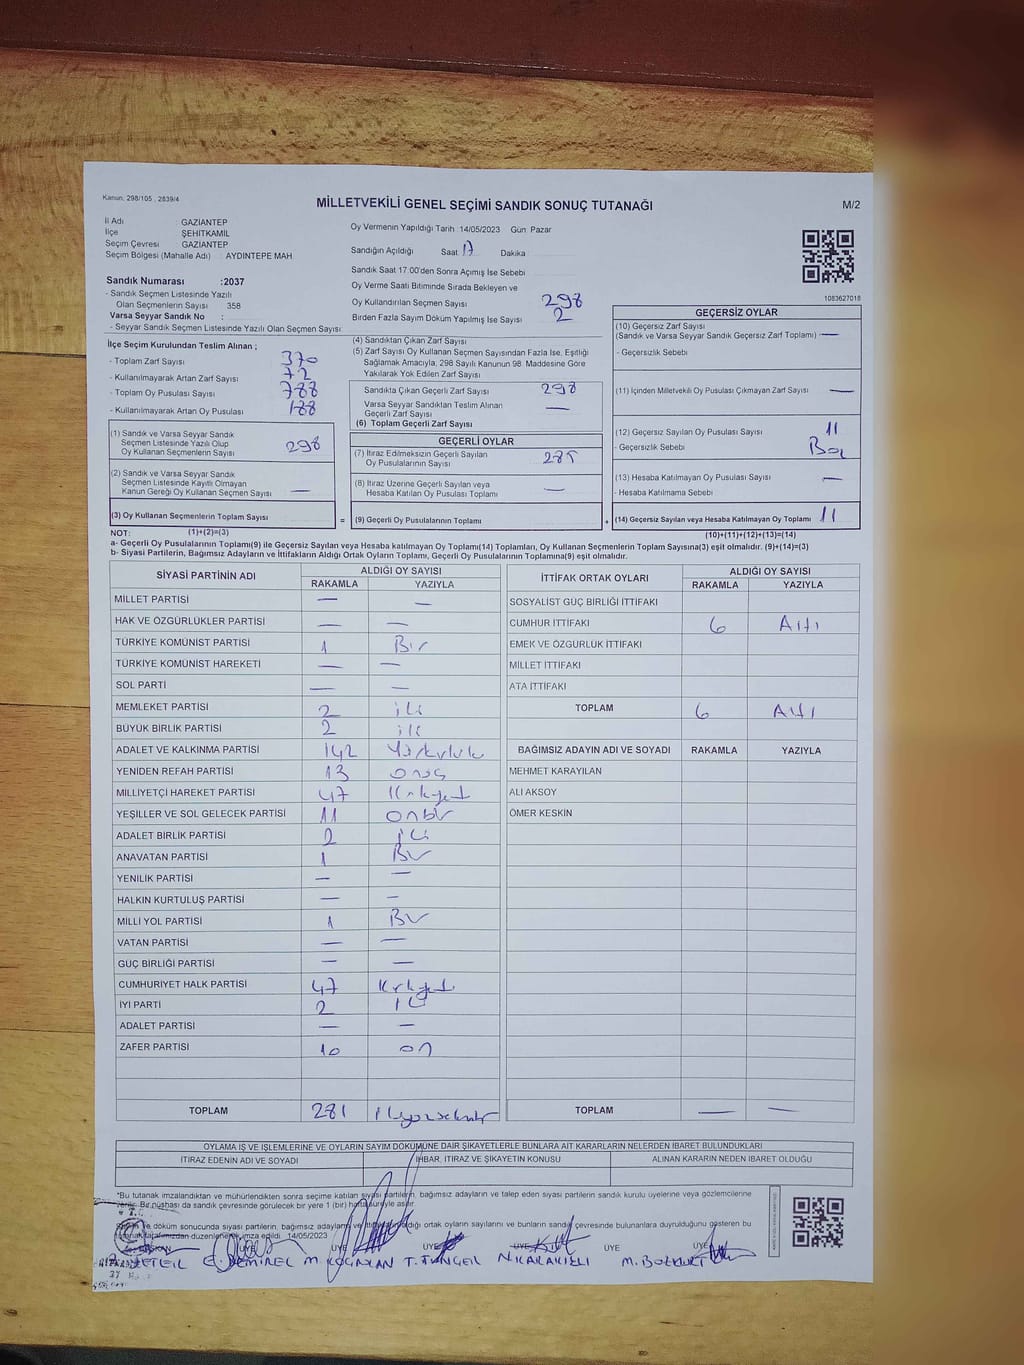 Kanun; 298/105 , 2839/4
MİLLETVEKİLİ GENEL SEÇİMİ SANDIK SONUÇ TUTANAĞI
M/2
İl Adı : GAZIANTEP
İlçe : ŞEHİTKAMİL
Seçim Çevresi : GAZIANTEP
Seçim Bölgesi (Mahalle Adı) : AYDINTEPE MAH
Oy Vermenin Yapıldığı Tarih :14/05/2023 Gün: Pazar
Sandığın Açıldığı Saat 17 Dakika
Sandık Saat 17.00'den Sonra Açımış İse Sebebi
Oy Verme Saati Bitiminde Sırada Bekleyen ve
Oy Kullandırılan Seçmen Sayısı 298
Birden Fazla Sayım Döküm Yapılmış İse Sayısı 2
Sandık Numarası :2037
- Sandık Seçmen Listesinde Yazılı
Olan Seçmenlerin Sayısı 358
Varsa Seyyar Sandık No :
- Seyyar Sandık Seçmen Listesinde Yazılı Olan Seçmen Sayısı
1083627018
İlçe Seçim Kurulundan Teslim Alınan ;
- Toplam Zarf Sayısı 370
- Kullanılmayarak Artan Zarf Sayısı 72
- Toplam Oy Pusulası Sayısı 788
- Kullanılmayarak Artan Oy Pusulası 188
(1) Sandık ve Varsa Seyyar Sandık
Seçmen Listesinde Yazılı Olup
Oy Kullanan Seçmenlerin Sayısı 298
(2) Sandık ve Varsa Seyyar Sandık
Seçmen Listesinde Kayıtlı Olmayan
Kanun Gereği Oy Kullanan Seçmen Sayısı —
(3) Oy Kullanan Seçmenlerin Toplam Sayısı
(1)+(2)=(3)
(4) Sandıktan Çıkan Zarf Sayısı
(5) Zarf Sayısı Oy Kullanan Seçmen Sayısından Fazla İse, Eşitliği
Sağlamak Amacıyla, 298 Sayılı Kanunun 98. Maddesine Göre
Yakılarak Yok Edilen Zarf Sayısı
Sandıkta Çıkan Geçerli Zarf Sayısı 298
Varsa Seyyar Sandıktan Teslim Alınan
Geçerli Zarf Sayısı —
(6) Toplam Geçerli Zarf Sayısı
GEÇERLİ OYLAR
(7) İtiraz Edilmeksizin Geçerli Sayılan
Oy Pusulalarının Sayısı 285
(8) İtiraz Üzerine Geçerli Sayılan ve
Hesaba Katılan Oy Pusulası Toplamı —
= (9) Geçerli Oy Pusulalarının Toplamı +
GEÇERSİZ OYLAR
(10) Geçersiz Zarf Sayısı
(Sandık ve Varsa Seyyar Sandık Geçersiz Zarf Toplamı) —
- Geçersizlik Sebebi
(11) İçinden Milletvekili Oy Pusulası Çıkmayan Zarf Sayısı —
(12) Geçersiz Sayılan Oy Pusulası Sayısı 11
- Geçersizlik Sebebi
(13) Hesaba Katılmayan Oy Pusulası Sayısı —
- Hesaba Katılmama Sebebi
(14) Geçersiz Sayılan veya Hesaba Katılmayan Oy Toplamı 11
(10)+(11)+(12)+(13)=(14)
NOT:
a- Geçerli Oy Pusulalarının Toplamı(9) ile Geçersiz Sayılan veya Hesaba katılmayan Oy Toplamı(14) Toplamları, Oy Kullanan Seçmenlerin Toplam Sayısına(3) eşit olmalıdır. (9)+(14)=(3)
b- Siyasi Partilerin, Bağımsız Adayların ve İttifakların Aldığı Ortak Oyların Toplamı, Geçerli Oy Pusulalarının Toplamına(9) eşit olmalıdır.
SİYASİ PARTİNİN ADI ALDIĞI OY SAYISI
RAKAMLA YAZIYLA
MİLLET PARTİSİ — —
HAK VE ÖZGÜRLÜKLER PARTİSİ — —
TÜRKİYE KOMÜNİST PARTİSİ 1 Bir
TÜRKİYE KOMÜNİST HAREKETİ — —
SOL PARTİ — —
MEMLEKET PARTİSİ 2 iki
BÜYÜK BİRLİK PARTİSİ 2 iki
ADALET VE KALKINMA PARTİSİ 142 Yüzkırkiki
YENİDEN REFAH PARTİSİ 13 onüç
MİLLİYETÇİ HAREKET PARTİSİ 47 Kırkyedi
YEŞİLLER VE SOL GELECEK PARTİSİ 11 onbir
ADALET BİRLİK PARTİSİ 2 iki
ANAVATAN PARTİSİ 1 Bir
YENİLİK PARTİSİ — —
HALKIN KURTULUŞ PARTİSİ — —
MİLLİ YOL PARTİSİ 1 Bir
VATAN PARTİSİ — —
GÜÇ BİRLİĞİ PARTİSİ — —
CUMHURİYET HALK PARTİSİ 47 Kırkyedi
İYİ PARTİ 2 iki
ADALET PARTİSİ — —
ZAFER PARTİSİ 10 on
TOPLAM 281
İTTİFAK ORTAK OYLARI ALDIĞI OY SAYISI
RAKAMLA YAZIYLA
SOSYALİST GÜÇ BİRLİĞİ İTTİFAKI
CUMHUR İTTİFAKI 6 Altı
EMEK VE ÖZGÜRLÜK İTTİFAKI
MİLLET İTTİFAKI
ATA İTTİFAKI
TOPLAM 6 Altı
BAĞIMSIZ ADAYIN ADI VE SOYADI RAKAMLA YAZIYLA
MEHMET KARAYILAN
ALİ AKSOY
ÖMER KESKİN
TOPLAM — —
OYLAMA İŞ VE İŞLEMLERİNE VE OYLARIN SAYIM DÖKÜMÜNE DAİR ŞİKAYETLERLE BUNLARA AİT KARARLARIN NELERDEN İBARET BULUNDUKLARI
İTİRAZ EDENİN ADI VE SOYADI İHBAR, İTİRAZ VE ŞİKAYETİN KONUSU ALINAN KARARIN NEDEN İBARET OLDUĞU
*Bu tutanak imzalandıktan ve mühürlendikten sonra seçime katılan siyasi partilerin, bağımsız adayların ve talep eden siyasi partilerin sandık kurulu üyelerine veya gözlemcilerine
verilir. Bir nüshası da sandık çevresinde görülecek bir yere 1 (bir) hafta süreyle asılır.
ve döküm sonucunda siyasi partilerin, bağımsız adayların ve ittifakların aldığı ortak oyların sayılarını ve bunların sandık çevresinde bulunanlara duyrulduğunu gösteren bu
tarafımızdan düzenlenerek imza edildi. 14/05/2023
BAŞKAN ÜYE ÜYE ÜYE ÜYE ÜYE
E. DEMİREL M. KOÇASLAN T. TUNGEL N.KARAKIŞLI M. BOZKURT